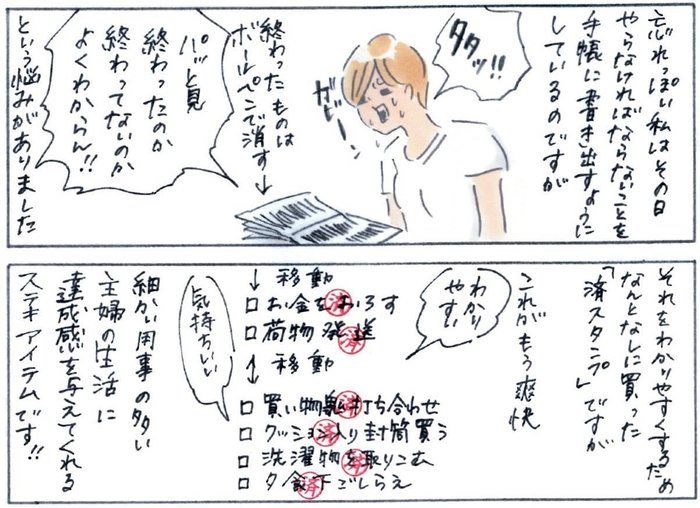 忘れっぽい私はその日
やらなければならないことを
手帳に書き出すように
しているのですが
タタッ!!
ガビーン
終わったものは
ボールペンで消す↓
パッと見
終わったのか
終わってないのか
よくわからん!!
という悩みがありました
それをわかりやすくするため
なんとなしに買った
「済スタンプ」ですが
これがもう爽快
わかり
やすい
↓ 移動
□ お金をおろす
済
□ 荷物発送
済
↑ 移動
□ 買い物 打ち合わせ
済
□ クッション入り封筒買う
済
□ 洗濯物を取りこむ
済
□ 夕食下ごしらえ
済
気持ちいい
細かい用事の多い
主婦の生活に
達成感を与えてくれる
ステキアイテムです!!